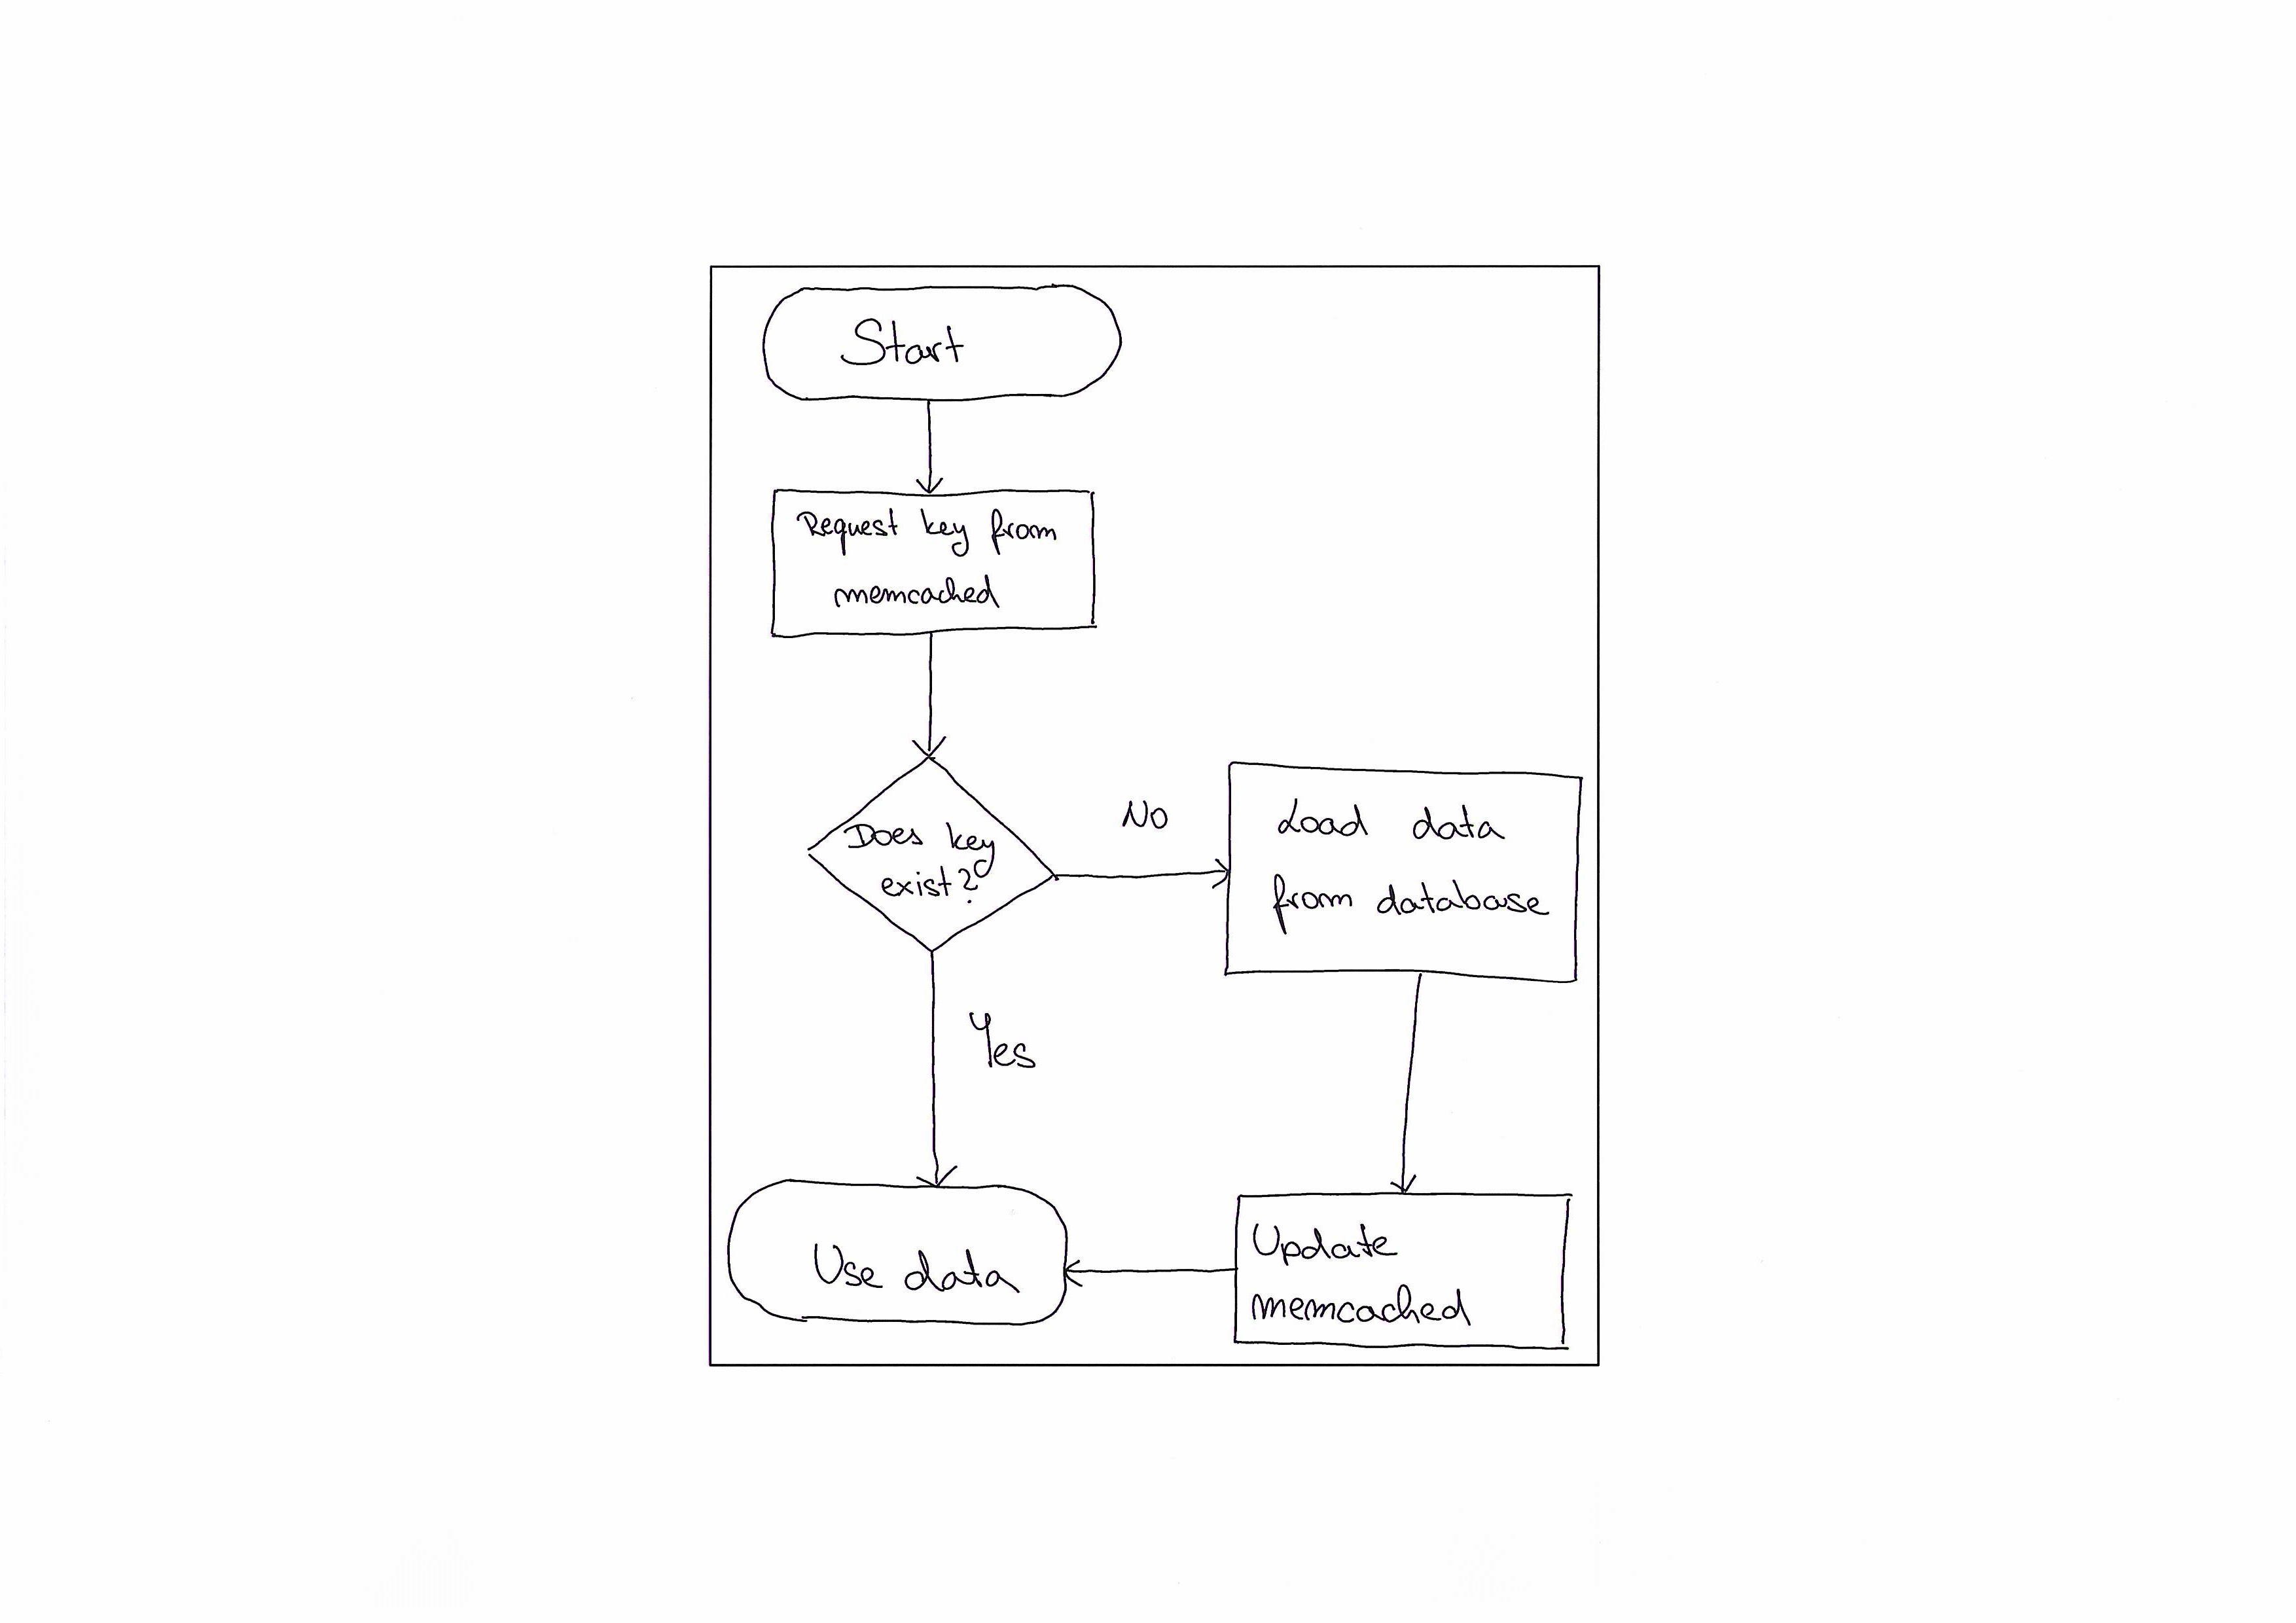 Start
Request key from
memcached
Does key
exist?
No
Load data
from database
Yes
Use data
Update
memcached